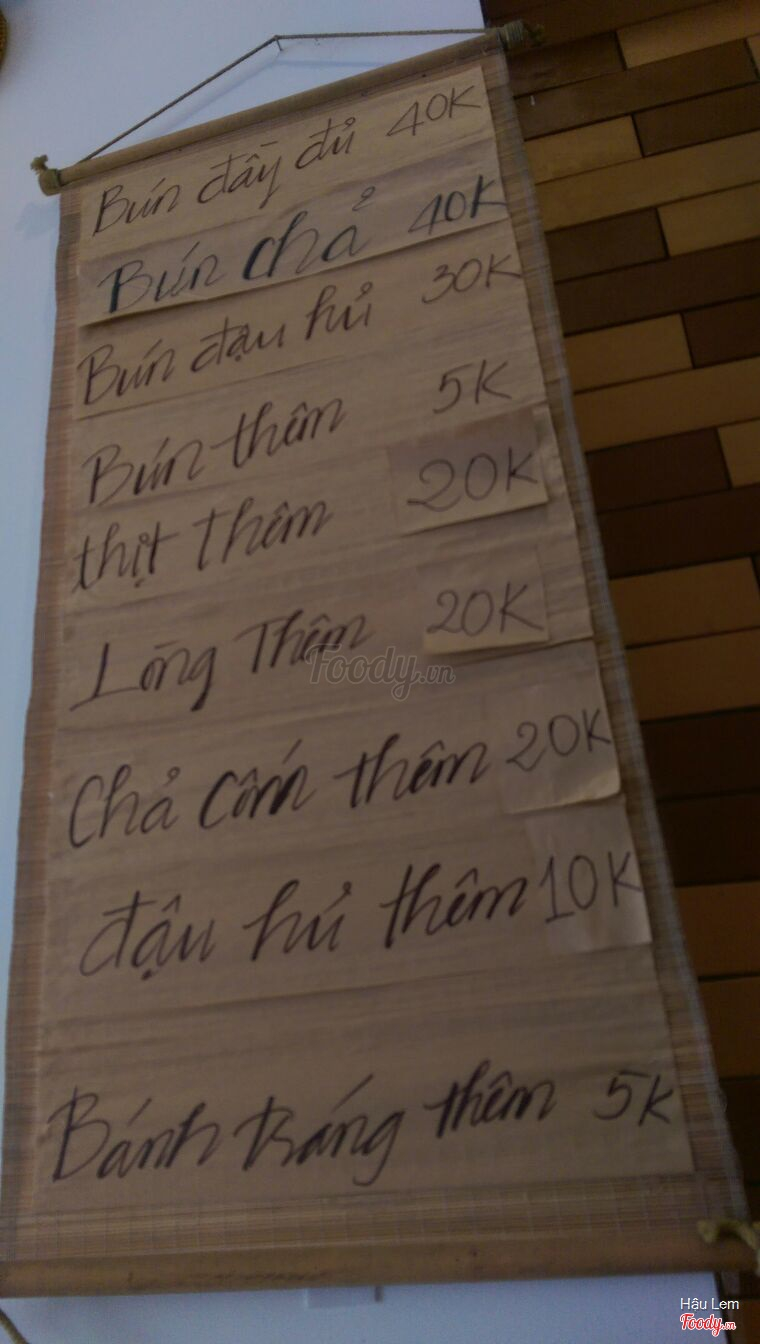 Bún đầy đủ 40K
Bún chả 40K
Bún đậu hủ 30K
Bún thêm 5K
thịt Thêm 20K
Lòng Thêm 20K
Foody.vn
Chả Cốm thêm 20K
đậu hủ thêm 10K
Bánh tráng thêm 5K
Hậu Lem
Foody.vn